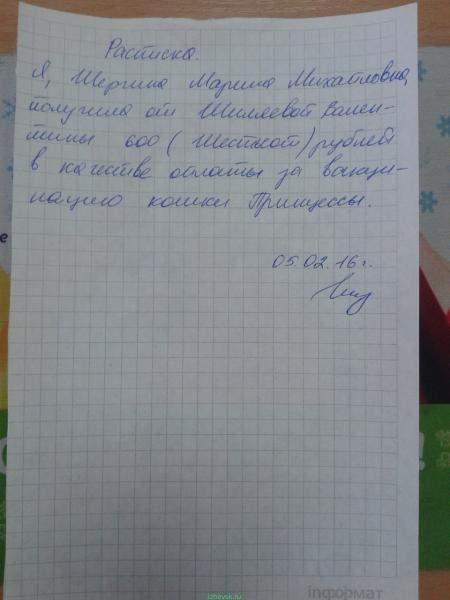 Расписка.
Я, Шергина Марина Михайловна,
получила от Шиляевой Вален-
тины 600 (Шестьсот) рублей
в качестве оплаты за вакци-
нацию кошки Принцессы.
05.02.16 г.
информат
izhevsk.ru